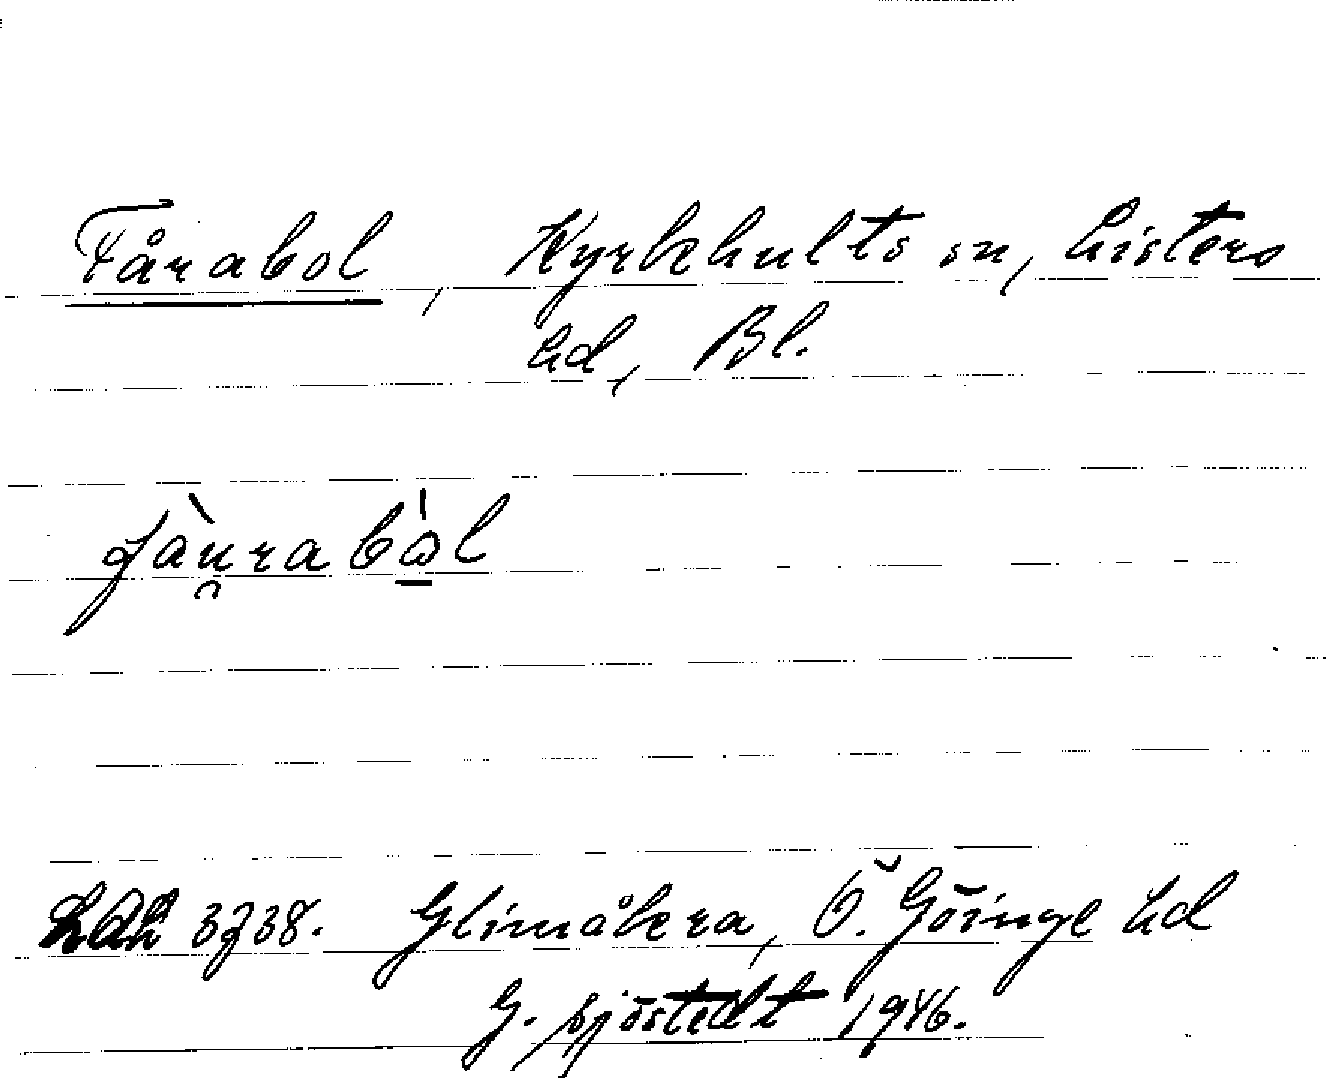 Fårabol, Kyrkhults sn, Listers
hd, Bl.
fàu̯rabò̱l
LAL 3738. Glimåkra, Ö. Göinge hd
G. Sjöstedt 1946.